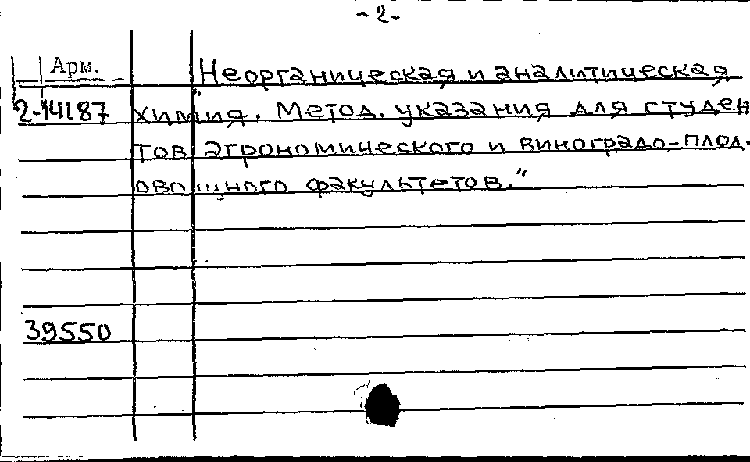 -2-
Арм. "Неорганическая и аналитическая
2-14187 химия. Метод. указания для студен
тов агрономического и виноградо-плод.
овощного факультетов."
39550